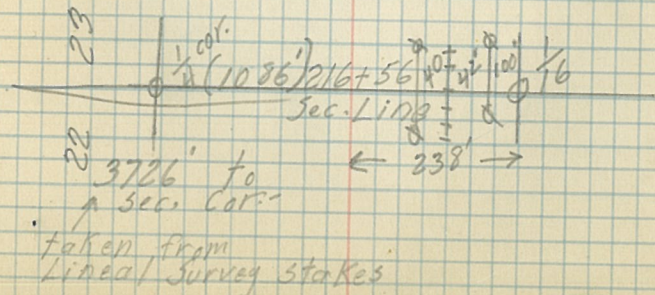 23
1/4 cor.
(1086') 216+56 40' 42' 100' 1/16
Sec. Line
22
238'
3726' to
sec. cor.-
taken from
Lineal Survey stakes